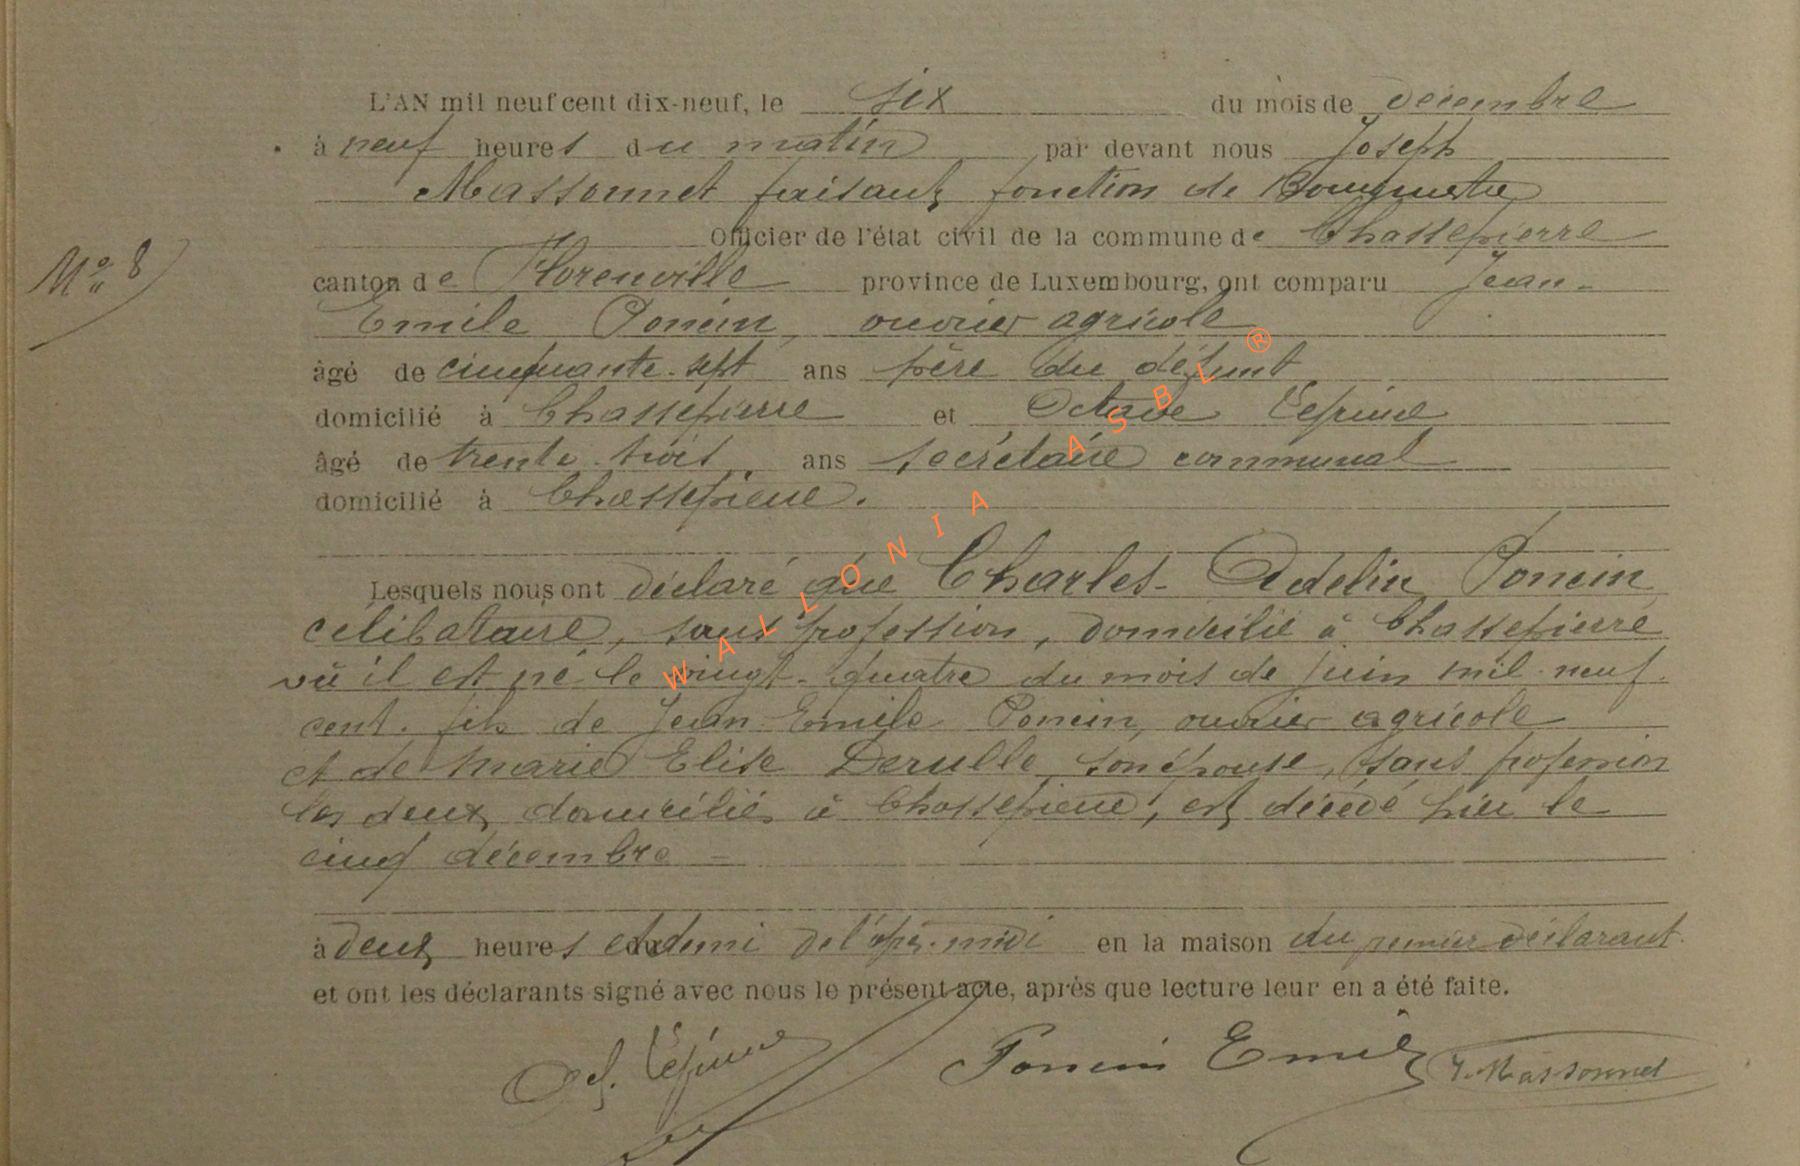 L'AN mil neuf cent dix-neuf, le six du mois de décembre
à neuf heures du matin par devant nous Joseph
Massonnet faisant fonction de Bourgmestre
Officier de l'état civil de la commune de Chassepierre
Nº 8
canton de Florenville province de Luxembourg, ont comparu Jean-
Emile Poncin, ouvrier agricole
âgé de cinquante-sept ans père du défunt
domicilié à Chassepierre et Octave Lépine
âgé de trente-trois ans secrétaire communal
domicilié à Chassepierre.
Lesquels nous ont déclaré que Charles-Adelin Poncin
célibataire, sans profession, domicilié à Chassepierre
où il est né le vingt-quatre du mois de juin mil-neuf-
cent. fils de Jean Emile Poncin, ouvrier agricole
et de Marie Elise Derulle, son épouse, sans profession
les deux domiciliés à Chassepierre, est décédé hier le
cinq décembre
à deux heures et demi de l'après-midi en la maison du premier déclarant.
et ont les déclarants signé avec nous le présent acte, après que lecture leur en a été faite.
Oct. Lépine Poncin Emile J. Massonnet
WALLONIA ASBL ®